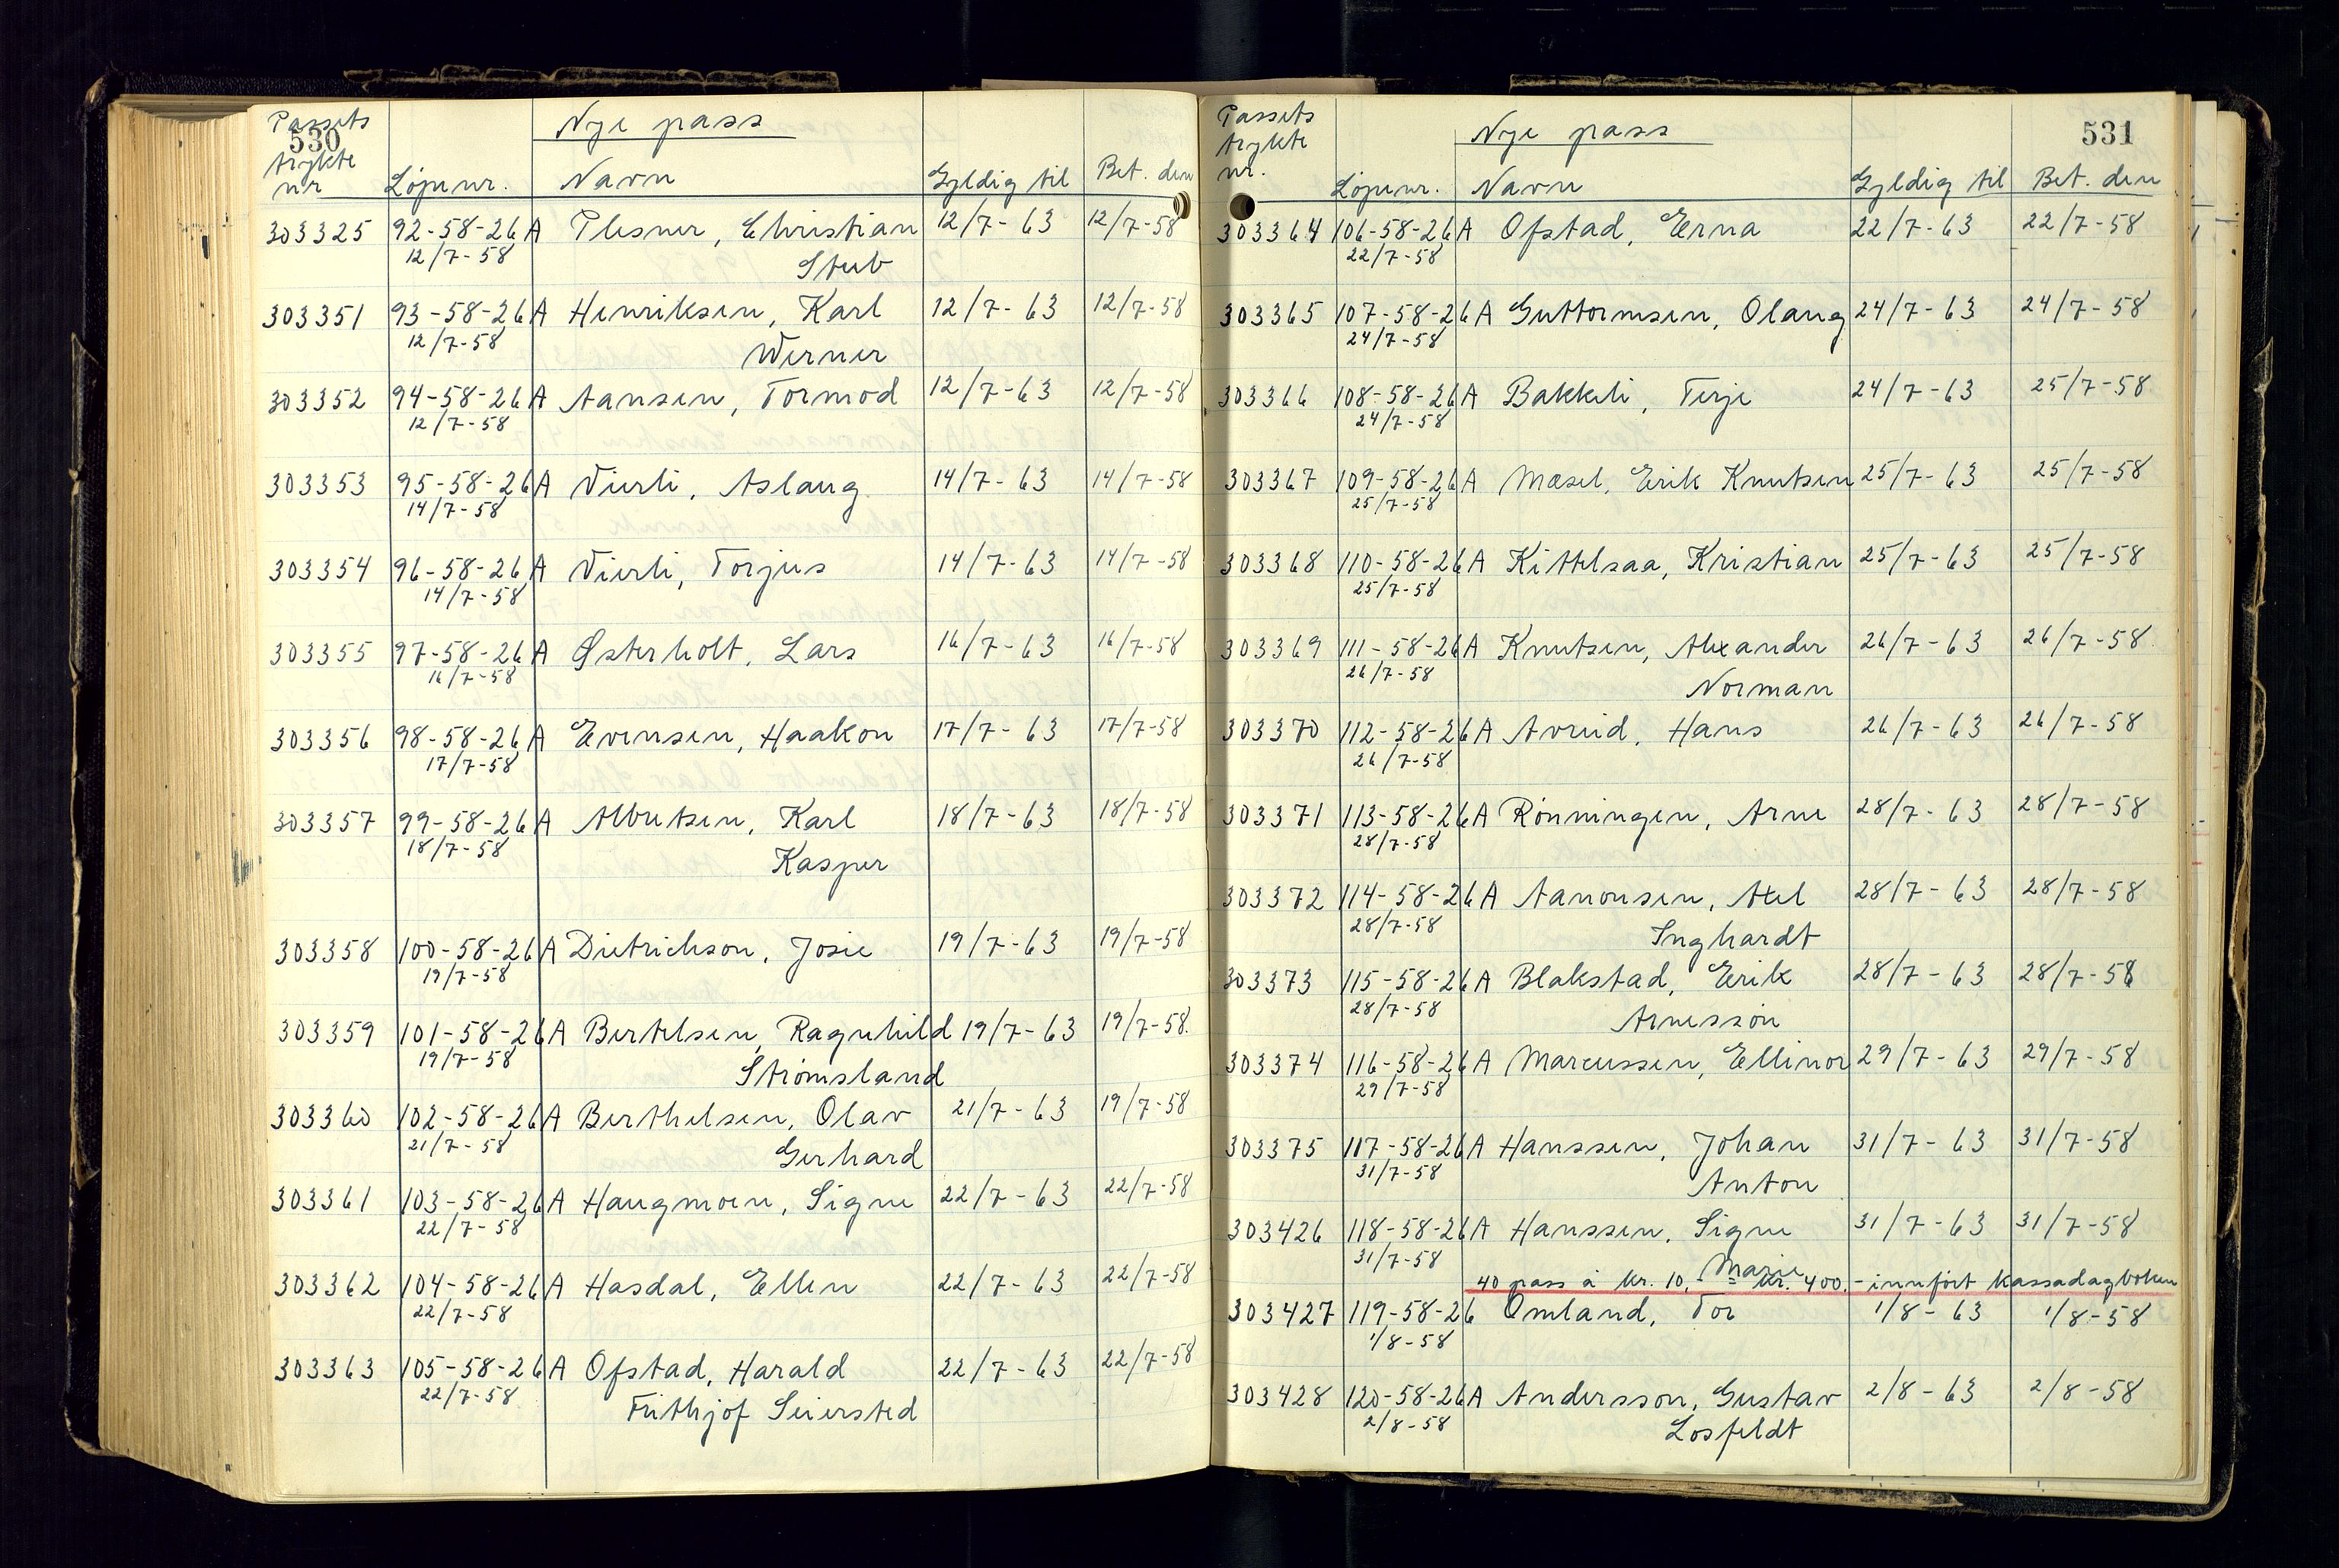 530
Passets
trykte
nr
Løpenr.
Nye pass
Navn
Gyldig til
Bet. den
303325 92-58-26A Plesner, Christian 12/7-63 12/7-58
12/7-58 Stub
303351 93-58-26A Henriksen, Karl 12/7-63 12/7-58
12/7-58 Werner
303352 94-58-26A Aansen, Tormod 12/7-63 12/7-58
12/7-58
303353 95-58-26A Vierli, Aslaug 14/7-63 14/7-58
14/7-58
303354 96-58-26A Vierli, Torjus 14/7-63 14/7-58
14/7-58
303355 97-58-26A Østerholt, Lars 16/7-63 16/7-58
16/7-58
303356 98-58-26A Evensen, Haakon 17/7-63 17/7-58
17/7-58
303357 99-58-26A Albretsen, Karl 18/7-63 18/7-58
18/7-58 Kasper
303358 100-58-26A Dietrichson, Josie 19/7-63 19/7-58
19/7-58
303359 101-58-26A Bertelsen, Ragnhild 19/7-63 19/7-58.
19/7-58 Strømsland
303360 102-58-26A Berthelsen, Olav 21/7-63 19/7-58
21/7-58 Gerhard
303361 103-58-26A Haugmoen, Signe 22/7-63 22/7-58
22/7-58
303362 104-58-26A Hasdal, Ellen 22/7-63 22/7-58
22/7-58
303363 105-58-26A Ofstad, Harald 22/7-63 22/7-58
22/7-58 Frithjof Seiersted
531
Passets
trykte
nr.
Løpenr.
Nye pass
Navn
Gyldig til
Bet. den
303364 106-58-26A Ofstad, Erna 22/7-63 22/7-58
22/7-58
303365 107-58-26A Guttormsen, Olaug 24/7-63 24/7-58
24/7-58
303366 108-58-26A Bakkeli, Terje 24/7-63 25/7-58
24/7-58
303367 109-58-26A Mæsel, Erik Knutsen 25/7-63 25/7-58
25/7-58
303368 110-58-26A Kittelsaa, Kristian 25/7-63 25/7-58
25/7-58
303369 111-58-26A Knutsen, Alexander 26/7-63 26/7-58
26/7-58 Norman
303370 112-58-26A Avreid, Hans 26/7-63 26/7-58
26/7-58
303371 113-58-26A Rønningen, Arne 28/7-63 28/7-58
28/7-58
303372 114-58-26A Aanonsen, Axel 28/7-63 28/7-58
28/7-58 Inghardt
303373 115-58-26A Blakstad, Erik 28/7-63 28/7-58
28/7-58 Arnesson
303374 116-58-26A Marcussen, Ellinor 29/7-63 29/7-58
29/7-58
303375 117-58-26A Hanssen, Johan 31/7-63 31/7-58
31/7-58 Anton
303426 118-58-26A Hanssen, Signe 31/7-63 31/7-58
31/7-58 Marie
40 pass à kr. 10,- = kr. 400.- innført kassadagboken
303427 119-58-26 Omland, Tor 1/8-63 1/8-58
1/8-58
303428 120-58-26A Andersson, Gustav 2/8-63 2/8-58
2/8-58 Losfeldt